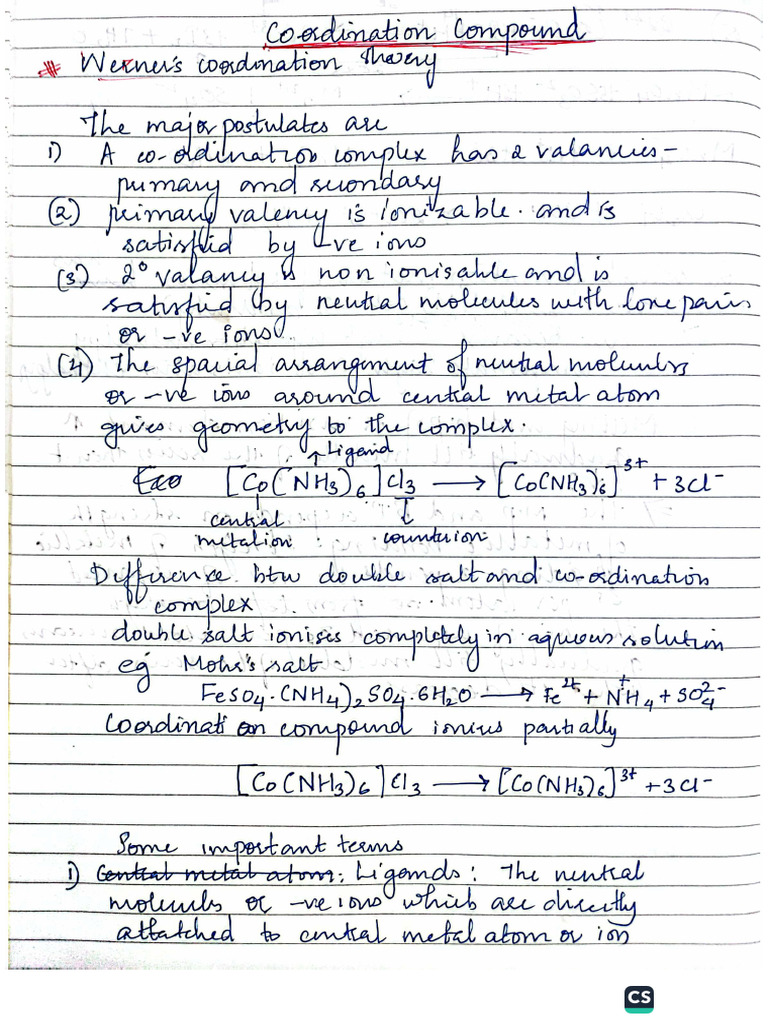 Co-ordination Compound
# Werner's coordination theory
The major postulates are
1) A co-ordination complex has 2 valancies -
primary and secondary
(2) primary valency is ionizable. and is
satisfied by -ve ions
(3) 2° valancy is non ionisable and is
satisfied by neutral molecules with lone pairs
or -ve ions.
(4) The spacial arrangement of neutral molecules
or -ve ions around central metal atom
gives geometry to the complex.
↑ Ligand
[Co(NH3)6]Cl3 → [Co(NH3)6]3+ + 3Cl-
central
metal ion counter ion
Difference btw double salt and co-ordination
complex
double salt ionises completely in aqueous solution
eg Mohr's salt
FeSO4.(NH4)2SO4.6H2O → Fe2+ + N+H4 + SO42-
Coordination compound ionises partially
[Co(NH3)6]Cl3 → [Co(NH3)6]3+ + 3Cl-
Some important terms
1) Central metal atom: Ligands: The neutral
molecules or -ve ions which are directly
attatched to central metal atom or ion
CS